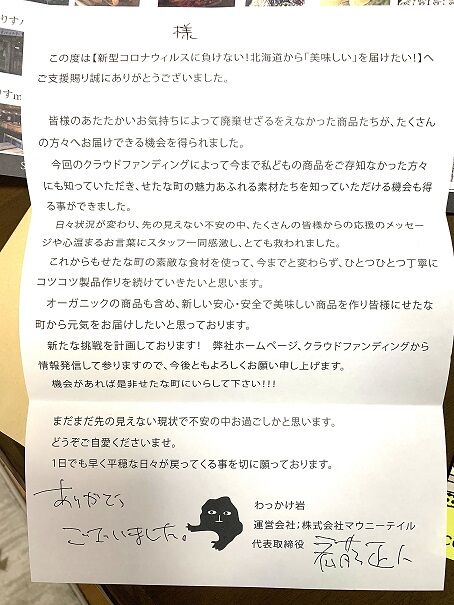 様
この度は【新型コロナウィルスに負けない!北海道から「美味しい」を届けたい!】へ
ご支援賜り誠にありがとうございました。
皆様のあたたかいお気持ちによって廃棄せざるをえなかった商品たちが、たくさん
の方々へお届けできる機会を得られました。
今回のクラウドファンディングによって今まで私どもの商品をご存知なかった方々
にも知っていただき、せたな町の魅力あふれる素材たちを知っていただける機会も得
る事ができました。
日々状況が変わり、先の見えない不安の中、たくさんの皆様からの応援のメッセー
ジや心温まるお言葉にスタッフ一同感激し、とても救われました。
これからもせたな町の素敵な食材を使って、今までと変わらず、ひとつひとつ丁寧に
コツコツ製品作りを続けていきたいと思います。
オーガニックの商品も含め、新しい安心・安全で美味しい商品を作り皆様にせたな
町から元気をお届けしたいと思っております。
新たな挑戦を計画しております! 弊社ホームページ、クラウドファンディングから
情報発信して参りますので、今後ともよろしくお願い申し上げます。
機会があれば是非せたな町にいらして下さい!!!
まだまだ先の見えない現状で不安の中お過ごしかと思います。
どうぞご自愛くださいませ。
1日でも早く平穏な日々が戻ってくる事を切に願っております。
ありがとう
ございました。
わっかけ岩
運営会社;株式会社マウニーテイル
代表取締役